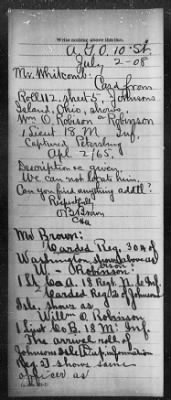 Write nothing above this line.
A.G.O. 10" St.
July 2-08
Mr. Whitcomb:
Card from
Roll 112, sheet 5, Johnsons
Island, Ohio, shows
Wm O. Robison or Robinson
1 Lieut 18. M Inf.
Captured Petersburg
Apl 2/65.
Description as given
We can not locate him.
Can you find anything addtl?
Respectfully
Mr Brown:
Carded Reg. 304 of
Washington shows above as
W. - Robinson
1 Lt Co A. 18 Regt
Carded Reg 2 of Johnsons
Isle. shows as
Willm O. Robinson
1 Lieut Co B. 18 Ms. Inf.
The arrival roll of
Johnsons Isle
Reg. 27 shows same
officer as